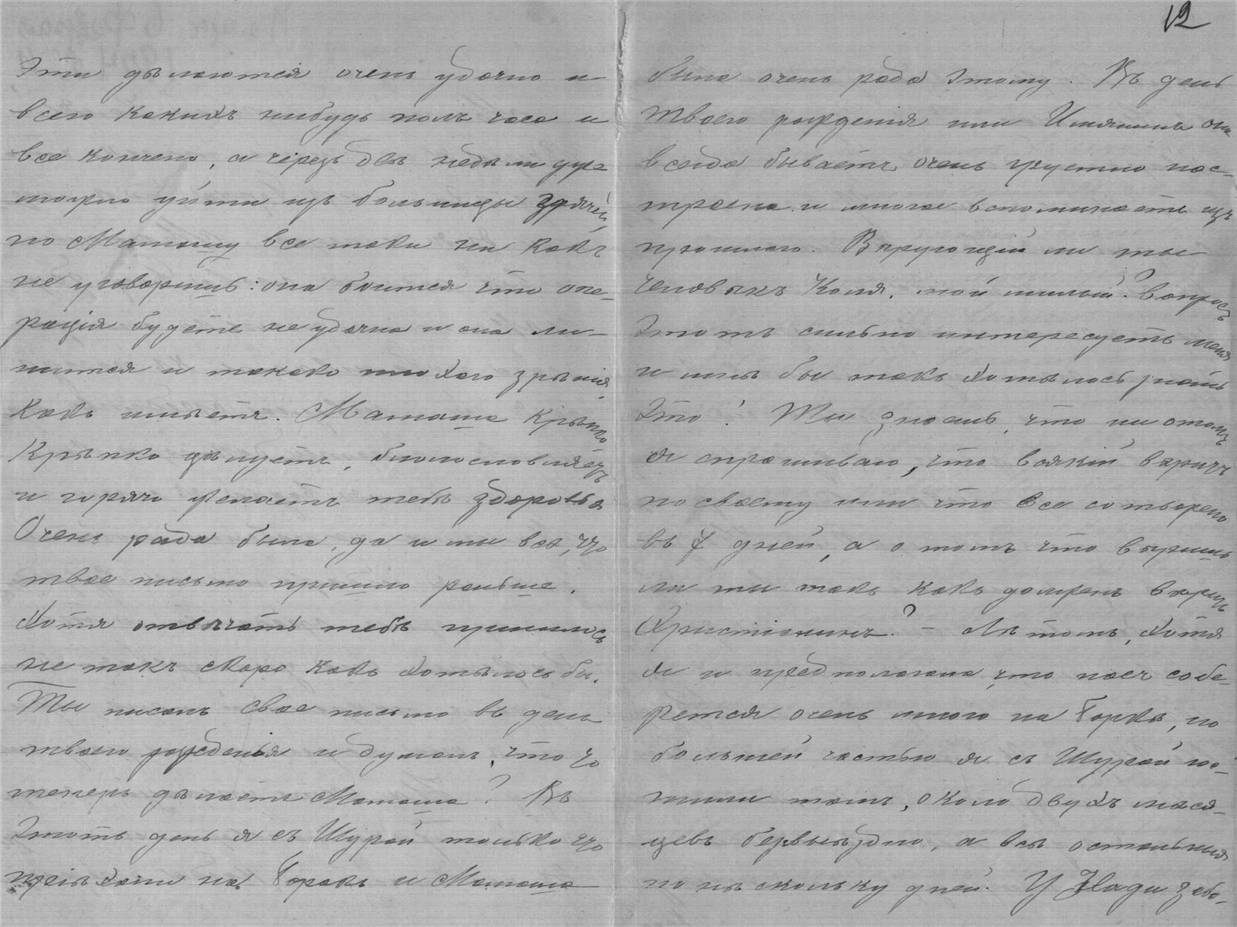 эти дѣлаются очень удачно и
всего какихъ нибудь полъ часа и
все кончено, а черезъ двѣ недѣли уже
можно уйти изъ больницы зрячей,
но Мамашу все таки ни какъ
не уговоришь: она боится что опе-
рація будетъ не удачна и она ли-
шится и такого плохого зрѣнія,
какъ имѣетъ. Мамаша крѣпко
крѣпко цѣлуетъ, благословляетъ
и горячо желаетъ тебѣ здоровья
Очень рада была, да и мы всѣ, что
твое письмо пришло раньше.
Хотя отвѣчать тебѣ пришлось
не такъ скоро какъ хотѣлось бы.
Ты писалъ свое письмо въ день
твоего рожденія и думалъ, что то
теперь дѣлаетъ Мамаша? Въ
этотъ день я съ Шурой только что
пріѣхали на Горокъ и Мамаша
12
была очень рада этому. Въ день
твоего рожденія или Имянинъ она
всегда бываетъ очень грустно нас-
троена и многое вспоминаетъ изъ
прошлаго. Вѣрующій ли ты
человѣкъ Коля, мой милый? вопросъ
этотъ сильно интересуетъ меня
и мнѣ бы такъ хотѣлось знать
это! Ты знаешь, что не о томъ
я спрашиваю, что всякій вѣритъ
по своему или что все сотворено
въ 7 дней, а о томъ что вѣришь
ли ты такъ какъ долженъ вѣрить
Христіанинъ? – Лѣтомъ, хотя
я и предполагала, что насъ собе-
рется очень много на Горкѣ, но
большей частью я съ Шурой жи-
лили тамъ, около двухъ мѣся-
цевъ безвыѣздно, а всѣ остальныя
по нѣскольку дней. У Нади забо-